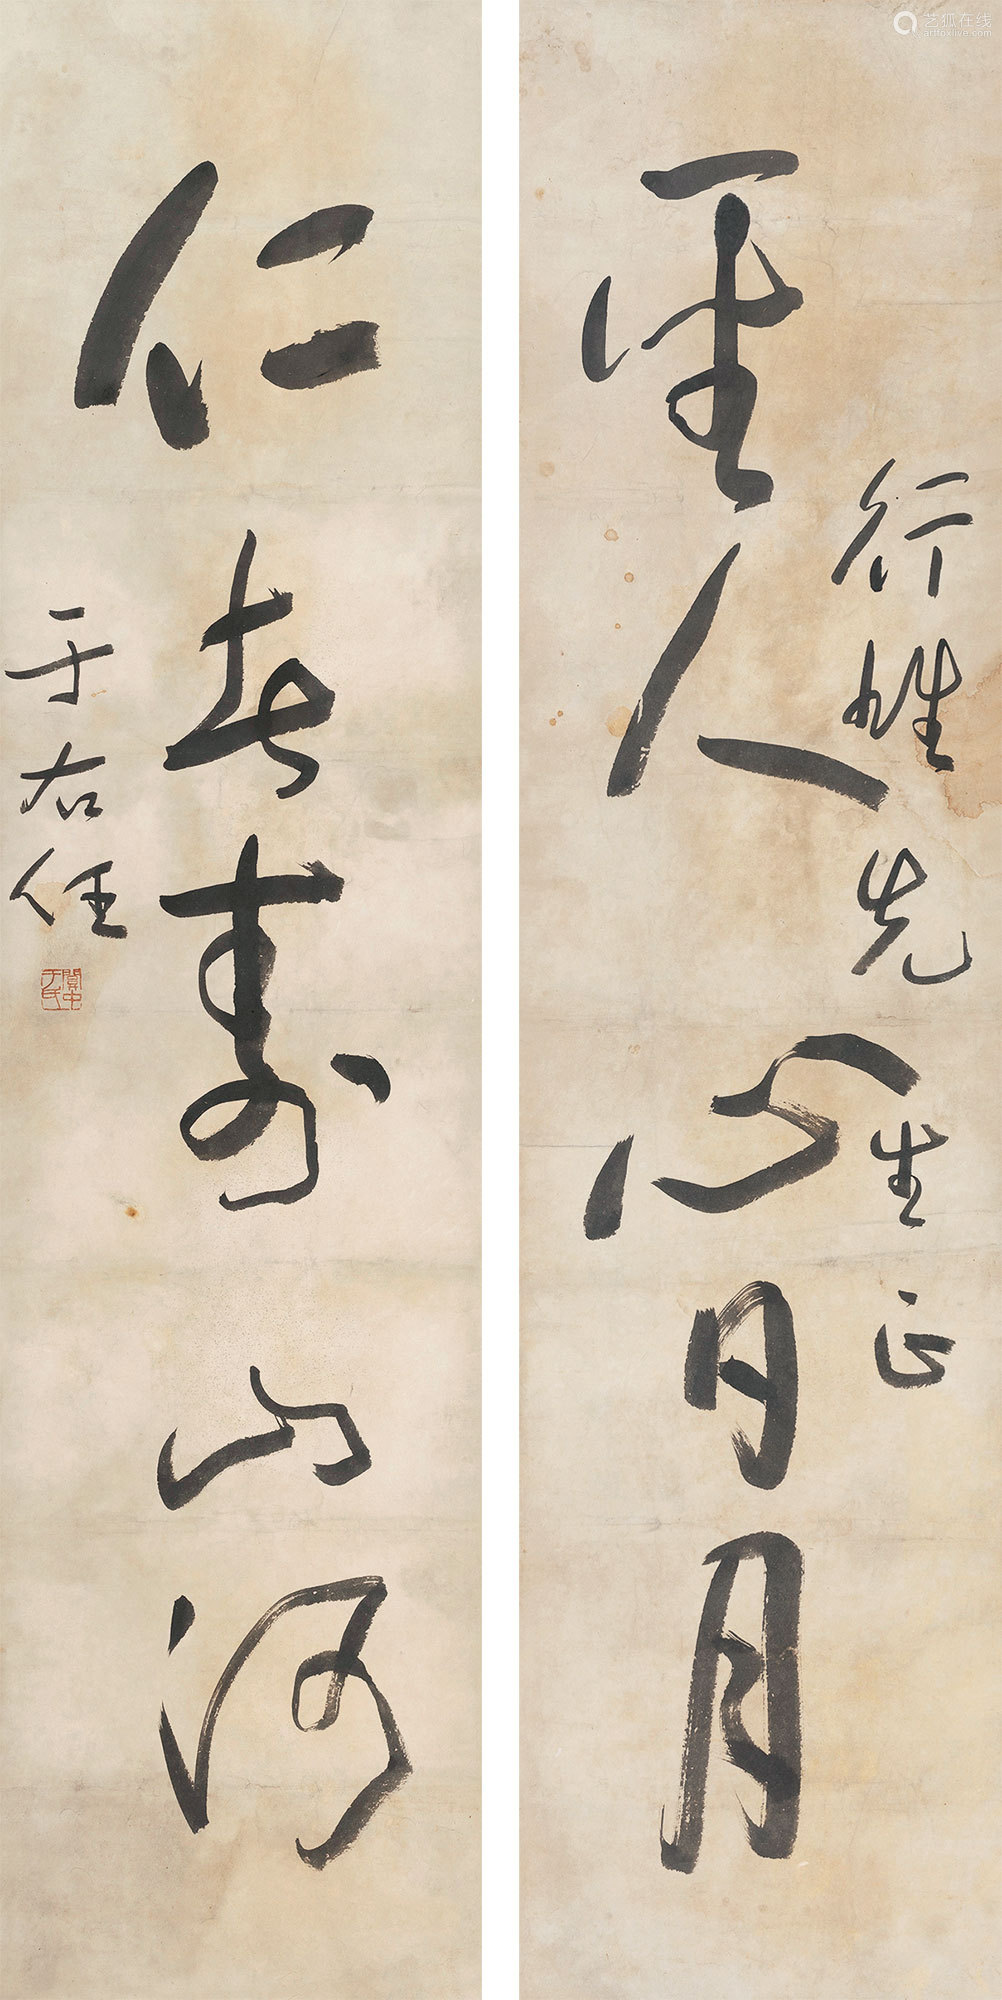 艺狐在线
artfoxlive.com
行先生正
聖人心日月
仁者壽山河
于右任
關中于氏